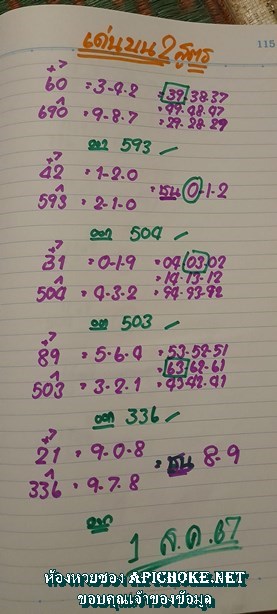 115
เด่นบน 2 สูตร
+7
60 = 3-4-2 = 39.38.37
690 = 9-8-7 = 49.48.47
= 29.28.29
ออก 593 ✓
+7
42 = 1-2-0
593 = 2-1-0 = ชน 0-1-2
ออก 504 ✓
+7
31 = 0-1-9 = 04.03.02
504 = 4-3-2 = 14.13.12
= 94.93.92
ออก 503 ✓
+7
89 = 5-6-4 = 53.52.51
503 = 3-2-1 = 63.62.61
= 43.42.41
ออก 336 ✓
+7
21 = 9-0-8
336 = 9-7-8 = ชน 8-9
ออก
1 ส.ค. 67
ห้องหวยซอง APICHOKE.NET
ขอบคุณเจ้าของข้อมูล